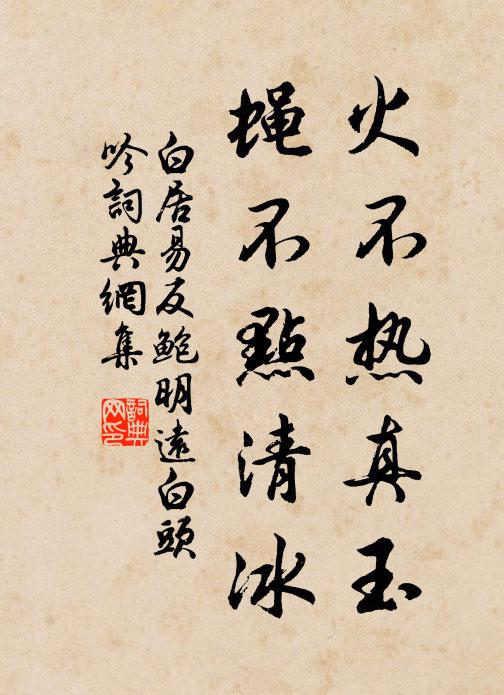 火不热真玉
蝇不點清冰
白居易反鲍明遠白頭
吟詞典網集
詞典网印